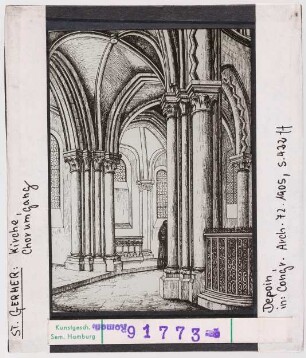 ST. GERMER: Kirche,
Chorumgang
Kunstgesch.
Sem. Hamburg
91773
Depoin,
in: Congr. Arch. 72. 1905, S.422 ff